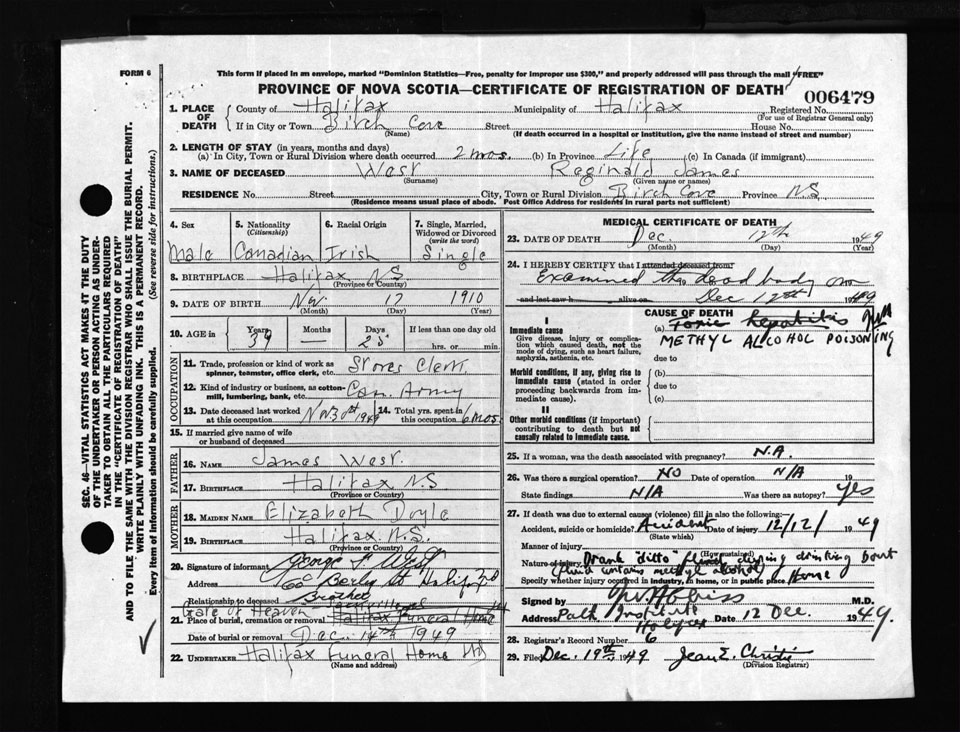 FORM 6
This form if placed in an envelope, marked "Dominion Statistics—Free, penalty for improper use $300," and properly addressed will pass through the mail "FREE"
PROVINCE OF NOVA SCOTIA—CERTIFICATE OF REGISTRATION OF DEATH
006479
1. PLACE OF DEATH County of Halifax Municipality of Halifax Registered No.
(For use of Registrar General only)
If in City or Town Birch Cove Street House No.
(Name) (If death occurred in a hospital or institution, give the name instead of street and number)
2. LENGTH OF STAY (in years, months and days)
(a) In City, Town or Rural Division where death occurred 2 mos. (b) In Province Life (c) In Canada (if immigrant)
3. NAME OF DECEASED West Reginald James
(Surname) (Given name or names)
RESIDENCE No. Street City, Town or Rural Division Birch Cove Province N.S.
(Residence means usual place of abode. Post Office Address for residents in rural parts not sufficient)
4. Sex Male
5. Nationality (Citizenship) Canadian
6. Racial Origin Irish
7. Single, Married, Widowed or Divorced (write the word) Single
8. BIRTHPLACE Halifax N.S
(Province or Country)
9. DATE OF BIRTH Nov. 17 1910
(Month) (Day) (Year)
10. AGE in Years 39 Months — Days 25 If less than one day old
hrs. or min.
OCCUPATION
11. Trade, profession or kind of work as spinner, teamster, office clerk, etc. Stores Clerk
12. Kind of industry or business, as cotton-mill, lumbering, bank, etc. Can. Army
13. Date deceased last worked at this occupation Nov 30th 1949
14. Total yrs. spent in this occupation 6 mos.
15. If married give name of wife or husband of deceased
FATHER
16. NAME James West.
17. BIRTHPLACE Halifax N.S
(Province or Country)
MOTHER
18. MAIDEN NAME Elizabeth Doyle
19. BIRTHPLACE Halifax N.S.
(Province or Country)
20. Signature of informant George F. West
Address St Halifax
Relationship to deceased Brother
Gate of Heaven
21. Place of burial, cremation or removal Halifax Funeral Home
Date of burial or removal Dec. 14th 1949
22. UNDERTAKER Halifax Funeral Home Ltd
(Name and address)
MEDICAL CERTIFICATE OF DEATH
23. DATE OF DEATH Dec. 12th 1949
(Month) (Day) (Year)
24. I HEREBY CERTIFY that I attended deceased from
Examined the dead body on
to
and last saw h alive on Dec 12th 1949
CAUSE OF DEATH
I
Immediate cause
Give disease, injury or complication which caused death, not the mode of dying, such as heart failure, asphyxia, asthenia, etc.
(a) Toxic hepatitis
METHYL ALCOHOL POISONING
due to
Morbid conditions, if any, giving rise to immediate cause (stated in order proceeding backwards from immediate cause).
(b)
due to
(c)
II
Other morbid conditions (if important) contributing to death but not causally related to immediate cause.
25. If a woman, was the death associated with pregnancy? N.A.
26. Was there a surgical operation? NO Date of operation N/A 19
State findings N/A Was there an autopsy? Yes
27. If death was due to external causes (violence) fill in also the following:
Accident, suicide or homicide? Accident Date of injury 12/12/ 1949
(State which)
Manner of injury
(How sustained)
Drank "ditto" fluid during drinking bout
Nature of injury (fluid contains methyl alcohol)
Specify whether injury occurred in industry, in home, or in public place Home
Signed by M.D.
Address Path Institute Halifax Date 12 Dec. 1949.
28. Registrar's Record Number 6
29. Filed Dec. 19th 1949 Jean E. Christie
(Division Registrar)
SEC. 46—VITAL STATISTICS ACT MAKES IT THE DUTY
OF THE UNDERTAKER OR PERSON ACTING AS UNDER-
TAKER TO OBTAIN ALL THE PARTICULARS REQUIRED
IN THE "CERTIFICATE OF REGISTRATION OF DEATH"
AND TO FILE THE SAME WITH THE DIVISION REGISTRAR WHO SHALL ISSUE THE BURIAL PERMIT.
WRITE PLAINLY WITH UNFADING INK. THIS IS A PERMANENT RECORD.
Every item of information should be carefully supplied. (See reverse side for instructions.)